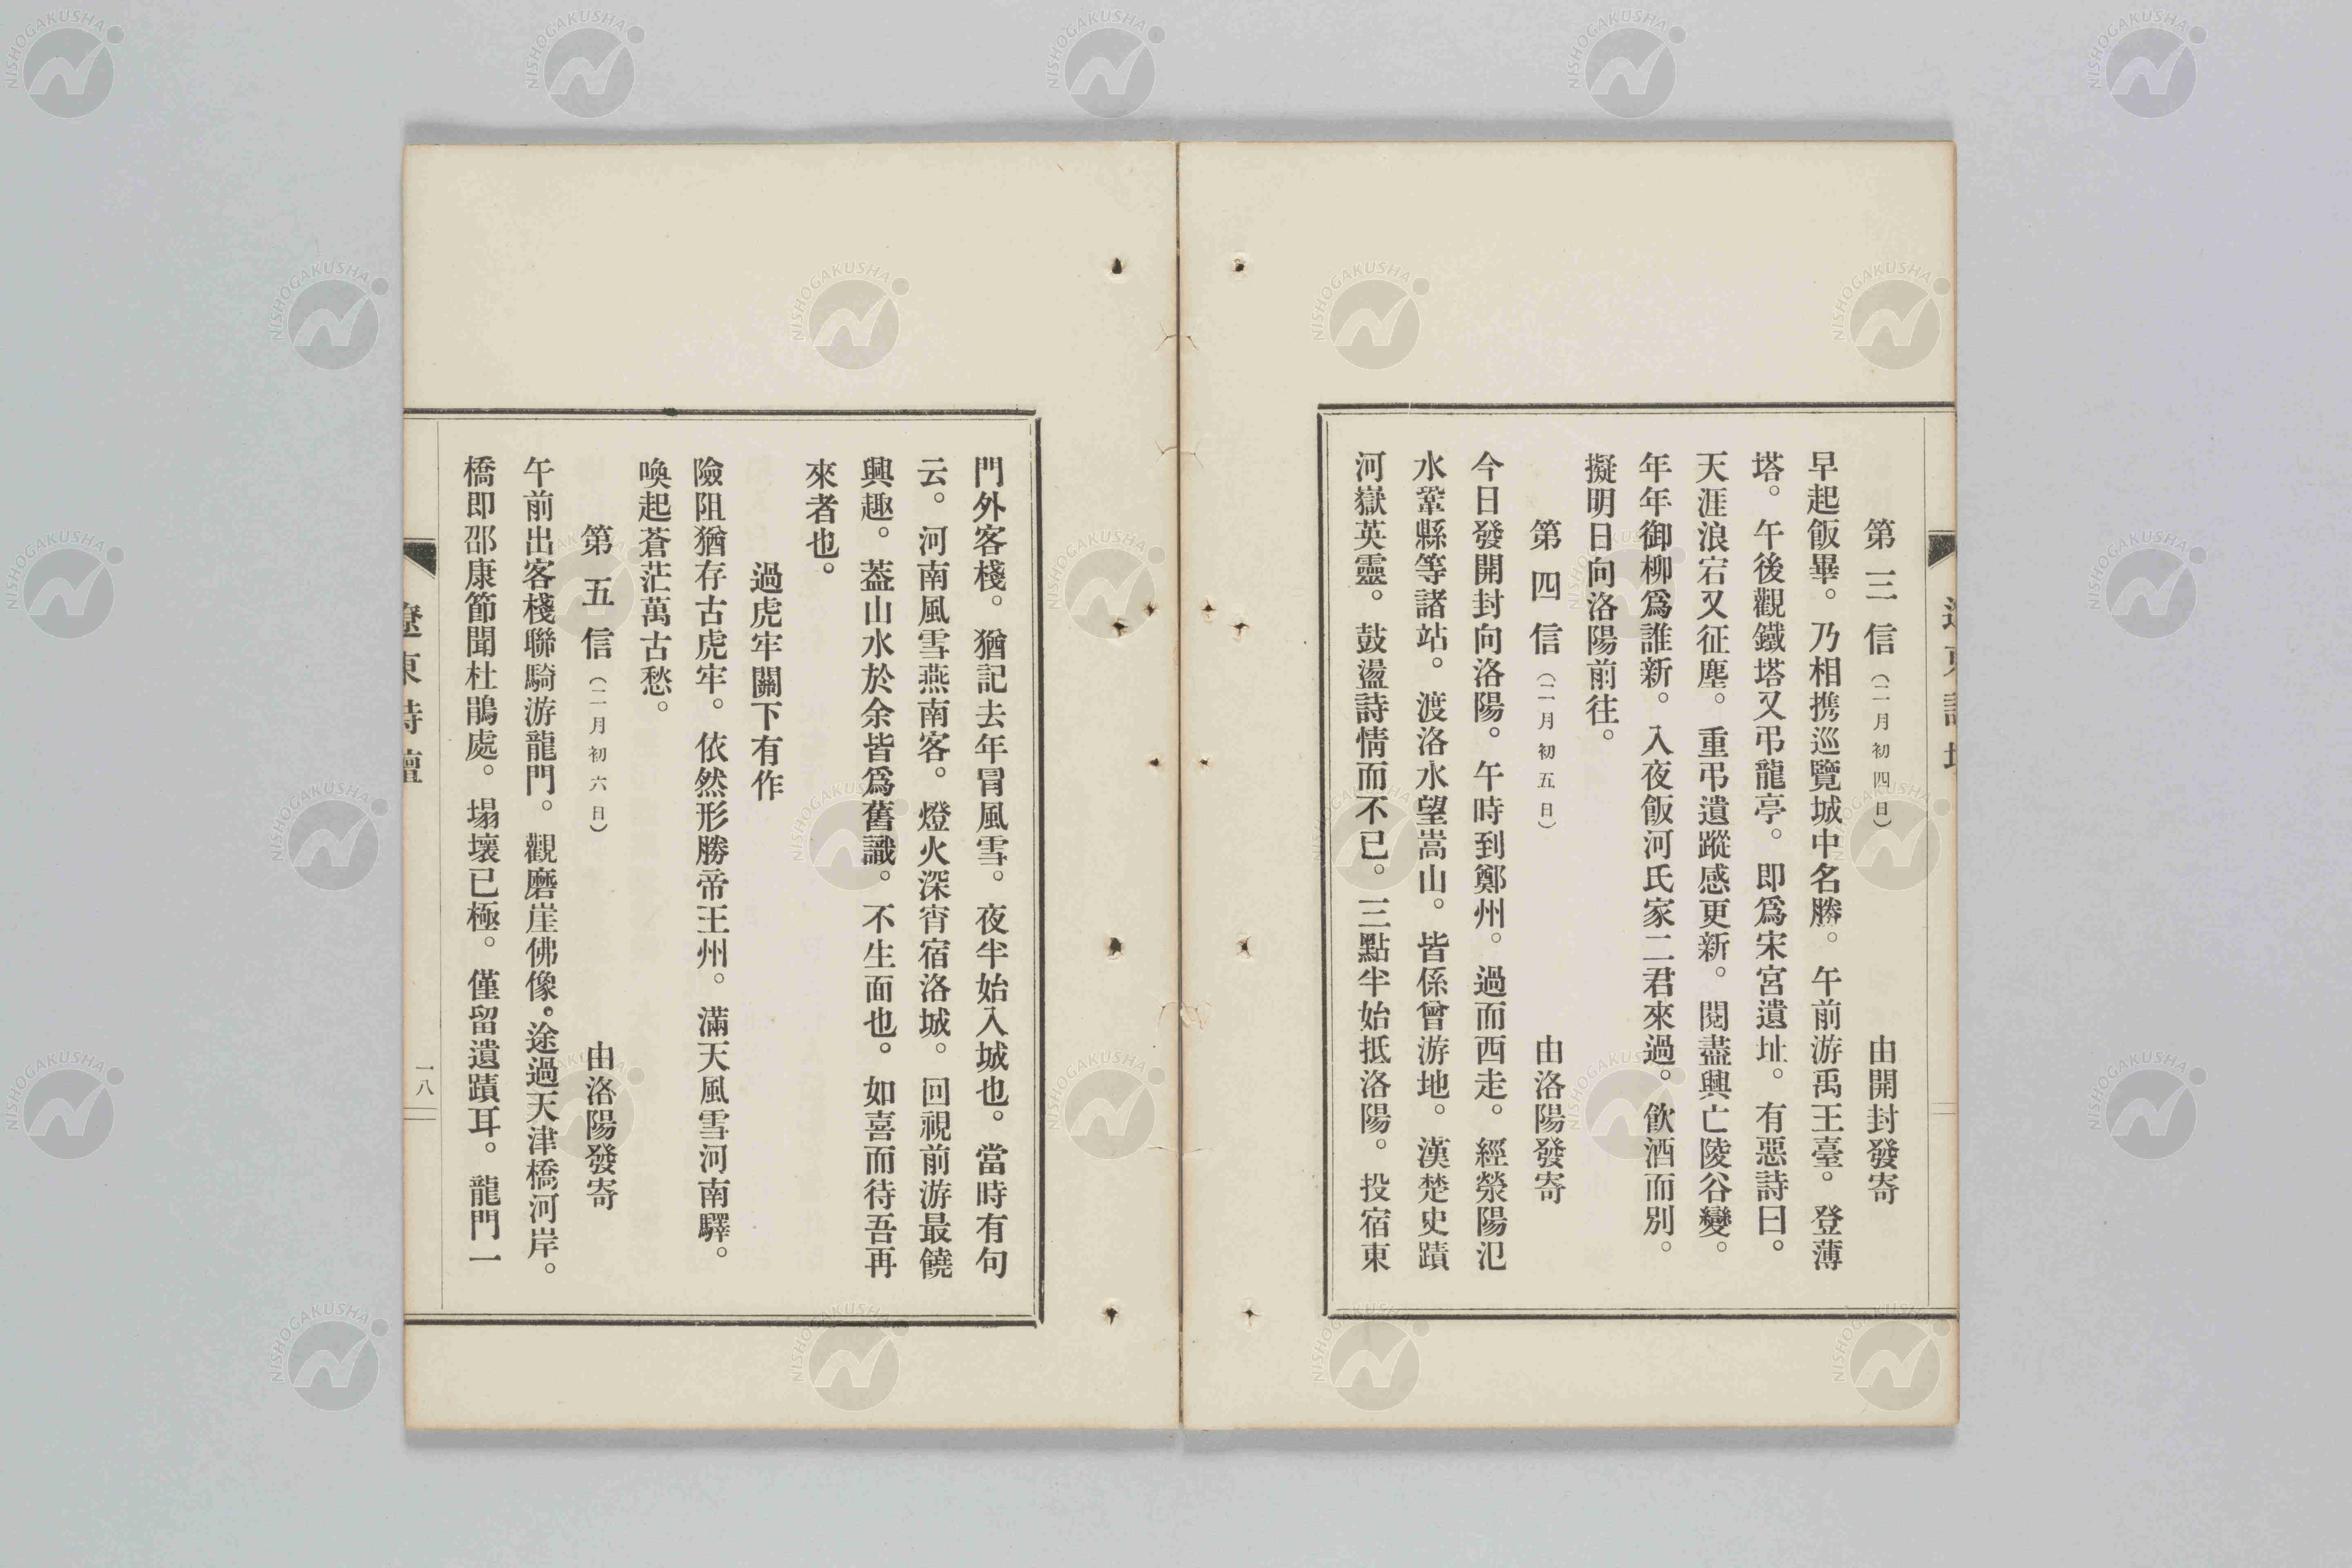 第三信（二月初四日）　由開封發寄
早起飯畢。乃相携巡覽城中名勝。午前游禹王臺。登薄
塔。午後觀鐵塔又弔龍亭。即爲宋宮遺址。有惡詩曰。
天涯浪宕又征塵。重弔遺蹤感更新。閱盡興亡陵谷變。
年年御柳爲誰新。入夜飯河氏家二君來過。飮酒而別。
擬明日向洛陽前往。
第四信（二月初五日）　由洛陽發寄
今日發開封向洛陽。午時到鄭州。過而西走。經滎陽氾
水鞏縣等諸站。渡洛水望嵩山。皆係曾游地。漢楚史蹟
河嶽英靈。鼓盪詩情而不已。三點半始抵洛陽。投宿東
門外客棧。猶記去年冒風雪。夜半始入城也。當時有句
云。河南風雪燕南客。燈火深宵宿洛城。回視前游最饒
興趣。葢山水於余皆爲舊識。不生面也。如喜而待吾再
來者也。
過虎牢關下有作
險阻猶存古虎牢。依然形勝帝王州。滿天風雪河南驛。
喚起蒼茫萬古愁。
第五信（二月初六日）　由洛陽發寄
午前出客棧聯騎游龍門。觀磨崖佛像。途過天津橋河岸。
橋即邵康節聞杜鵑處。塌壞已極。僅留遺蹟耳。龍門一
遼東詩壇
一八
NISHOGAKUSHA